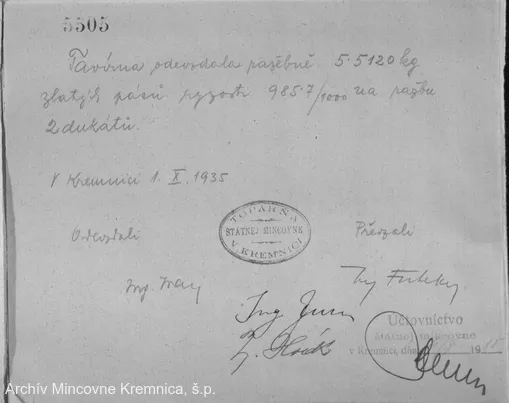 5505
Tavírna odevzdala ražebně 5.5120 kg
zlatých pásů ryzosti 985.7/1000 na ražbu
2 dukátů.
V Kremnici 1. X. 1935
TOPÁRŇA
ŠTÁTNEJ MINCOVNE
V KREMNICI
Odevzdali
Převzali
Ing.
Ing
Ing
Účtovníctvo
štátnej mincovne
v Kremnici, dňa
19
Archív Mincovne Kremnica, š.p.